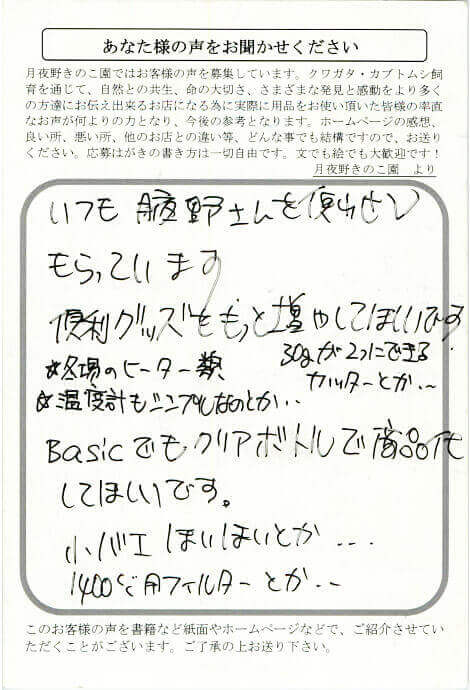 あなた様の声をお聞かせください
月夜野きのこ園ではお客様の声を募集しています。クワガタ・カブトムシ飼
育を通じて、自然との共生、命の大切さ、さまざまな発見と感動をより多く
の方達にお伝え出来るお店になる為に実際に用品をお使い頂いた皆様の率直
なお声が何よりの力となり、今後の参考となります。ホームページの感想、
良い所、悪い所、他のお店との違い等、どんな事でも結構ですので、お送り
ください。応募はがきの書き方は一切自由です。文でも絵でも大歓迎です！
月夜野きのこ園　より
いつも 野さんを使わせて
もらっています
便利グッズをもっと増やしてほしいです
30gが2つにできる
カッターとか…
☆冬場のヒーター類
☆温度計もシンプルなのとか…
Basicでもクリアボトルで商品化
してほしいです。
小バエほいほいとか…
1400cc用フィルターとか…
このお客様の声を書籍など紙面やホームページなどで、ご紹介させてい
ただくことがございます。ご了承の上お送り下さい。